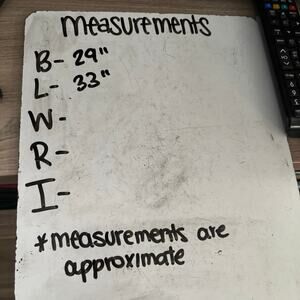 measurements
B- 29"
L- 33"
W-
R-
I-
*measurements are
approximate